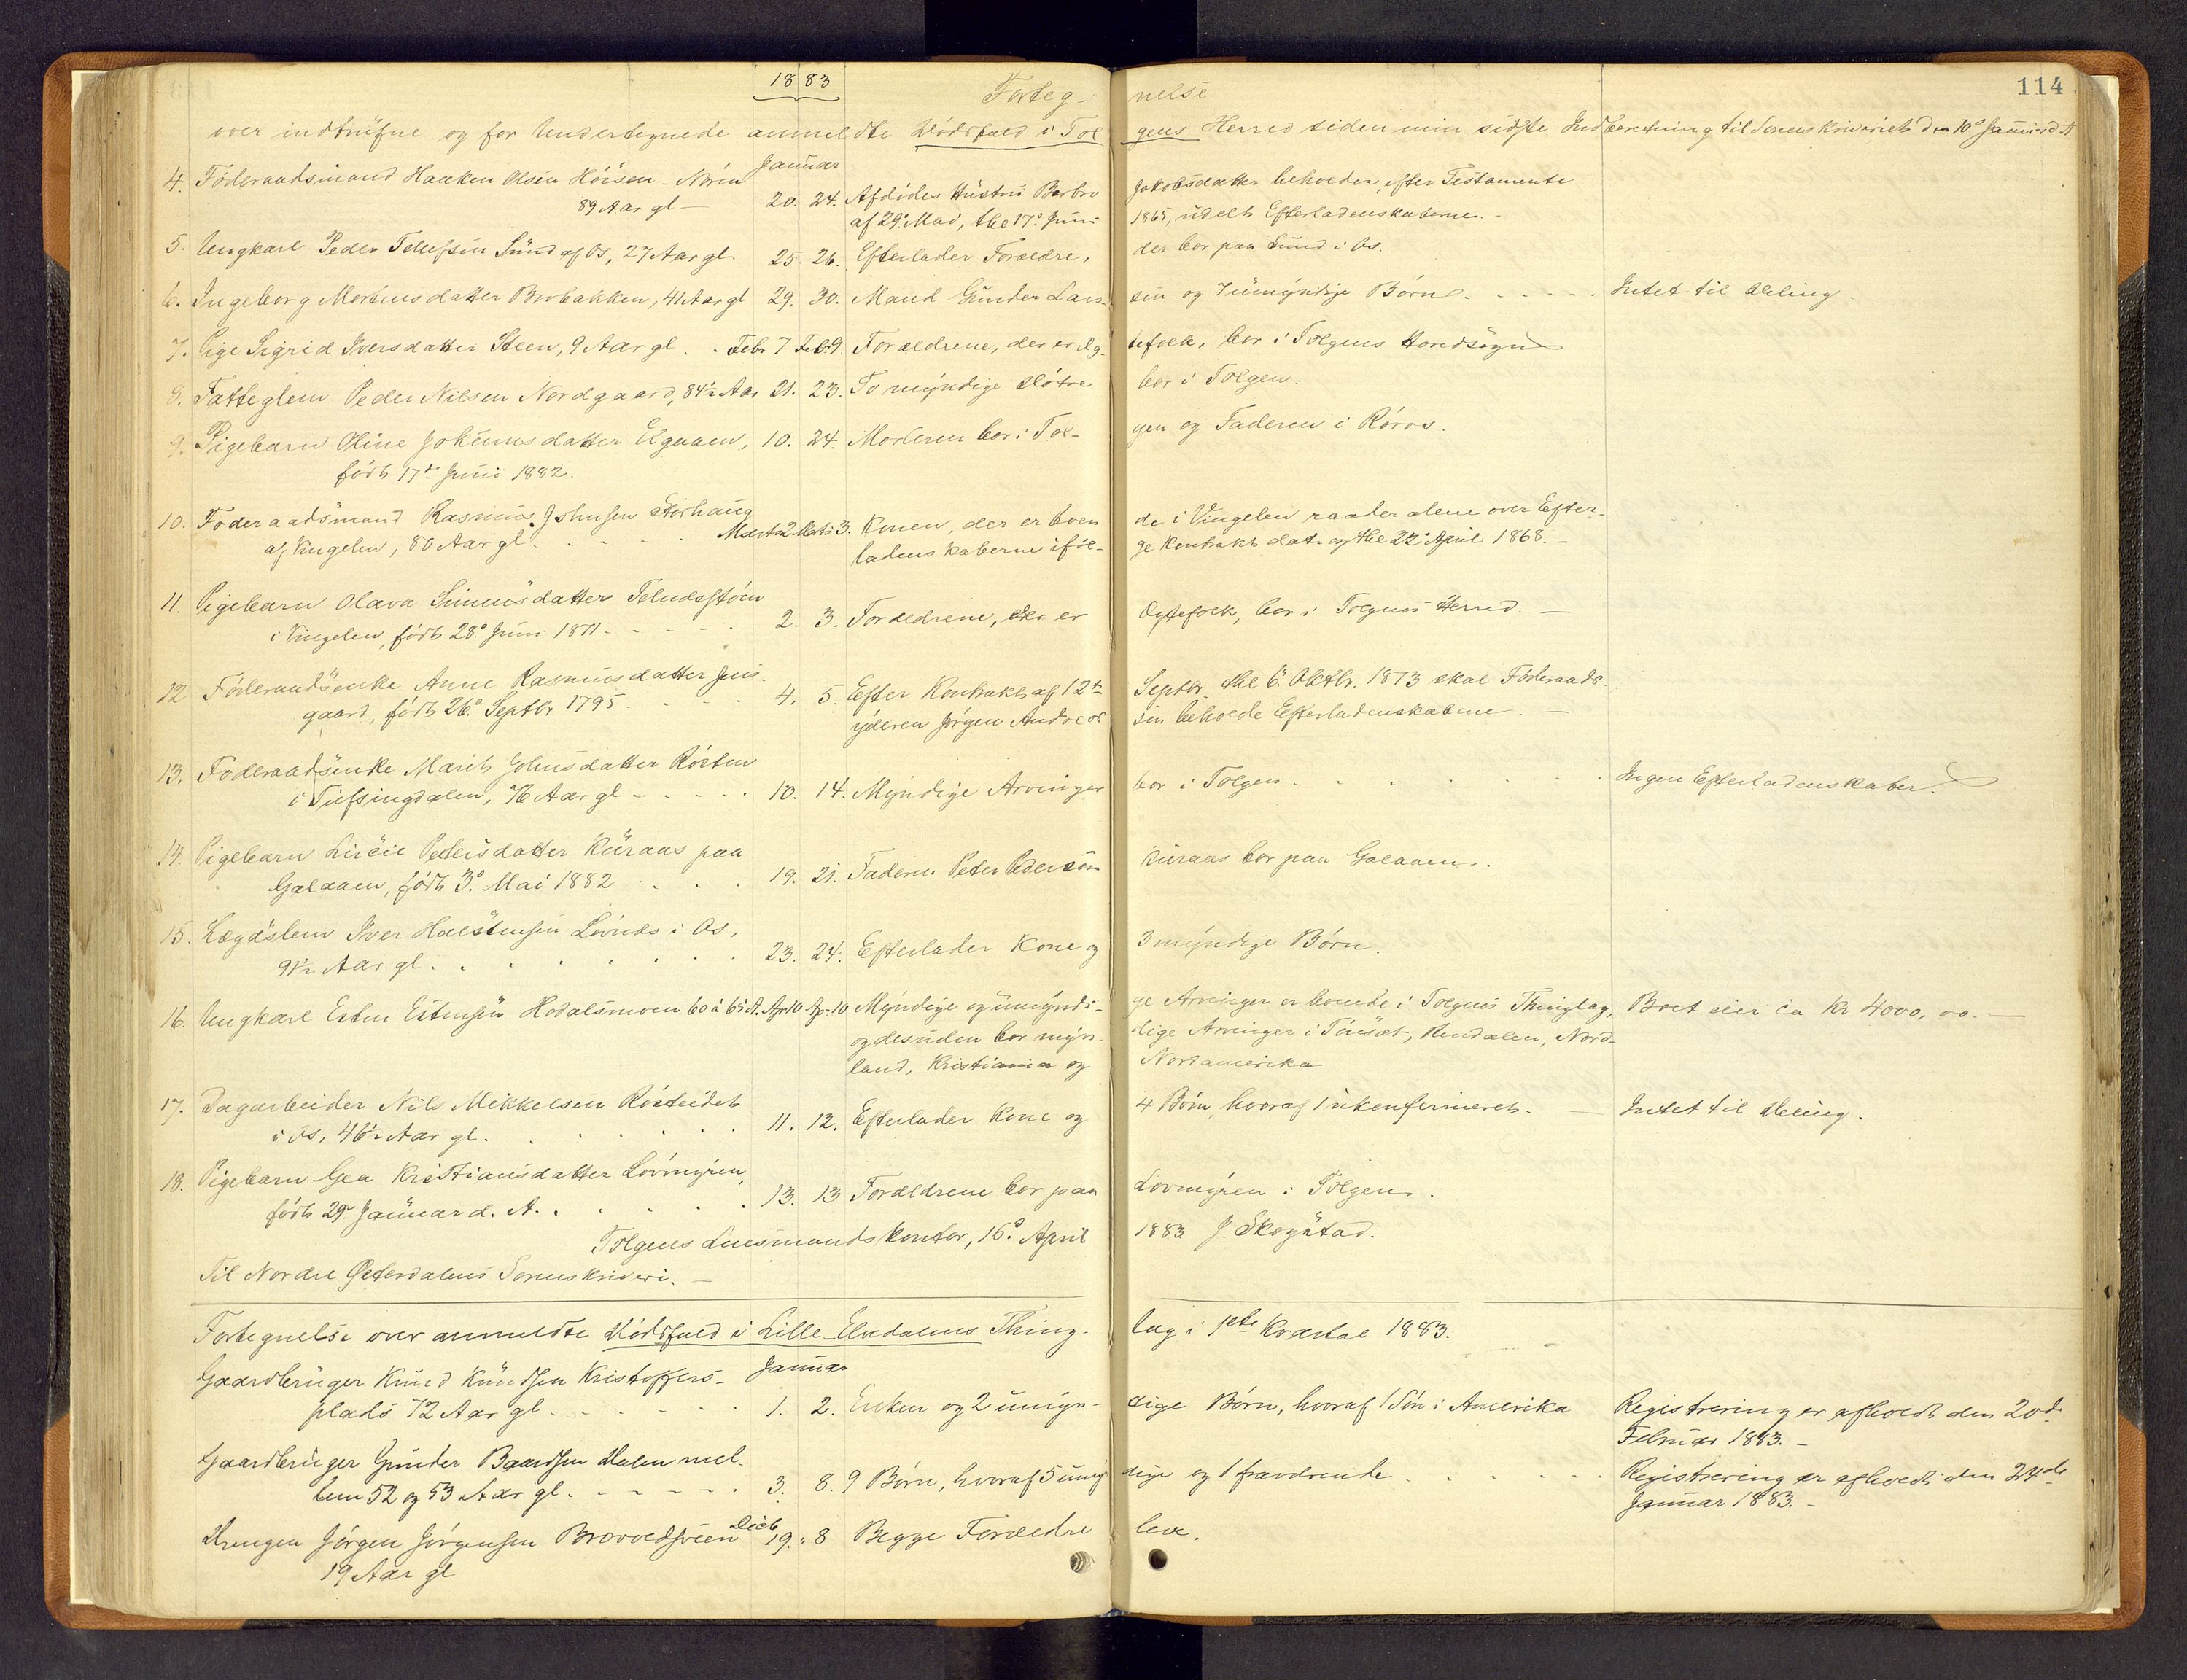 1883
114
Forteg-nelse
over indtrufne og for Undertegnede anmeldte Dødsfald i Tolgens Herred siden min sidste Indberetning til Sorenskriveriet den 10de Januar d. A.
Januar
4. Føderaadsmand Haaken Olsen 20. 24. Afdødes Hustru Barbro Jakobsdatter beholder, efter Testamente
89 Aar gl — af 29de Mai, thl 17de Juni 1865, udelt Efterladenskaberne. -
5. Ungkarl Peder Tollefsen Sund af Os, 27 Aar gl 25. 26. Efterlader Forældre, der bor paa Sund i Os.
6. Ingeborg Mortensdatter Brobakken, 41 Aar gl 29. 30. Mand Gunder Larsen og 7 umyndige Børn. - - - - - Intet til Deling.
7. Pige Sigrid Iversdatter Steen, 9 Aar gl. . Febr 7 Feb. 9. Forældrene, der er Ægtefolk, bor i Tolgens Hovedsogn
8. Fatteglem Peder Nilsen Nordgaard, 84½ Aar 21. 23. To myndige Døtre bor i Tolgen.
9. Pigebarn Oline Johannesdatter 10. 24. Moderen bor i Tolgen og Faderen i Røros.
født 17de Juni 1882.
10. Føderaadsmand Rasmus Johnsen Storhaug Marts 2 Marts 3. Konen, der er boende i Vingelen raader alene over Efter-
af Vingelen, 80 Aar gl. - - - - ladenskaberne ifølge Kontrakt dat. og thl 22de April 1868. -
11. Pigebarn Olava Simensdatter
i Vingelen, født 28de Juni 1871 - - - - 2. 3. Forældrene, der er Ægtefolk, bor i Tolgens Herred. —
12 Føderaadsenke Anne Rasmusdatter Jens- 4. 5. Efter Kontrakt af 12te Septbr. thl 6te Oktbr. 1873 skal Føderaads-
gaard, født 26de Septbr 1795. - - - yderen Jørgen Andersen beholde Efterladenskaberne. —
13. Føderaadsenke Marit Johnsdatter Røsten
i Tufsingdalen, 76 Aar gl - - - - - 10. 14. Myndige Arvinger bor i Tolgen. - - - - - Ingen Efterladenskaber.
14. Pigebarn Pedersdatter Kuraas paa
Galaaen, født 3de Mai 1882 . . . 19. 21. Faderen Peder Pedersen Kuraas bor paa Galaaen.
15. Lægdslem Iver Halstensen i Os,
91½ Aar gl. . . . . . . . 23. 24. Efterlader Kone og 3 myndige Børn.
16. Ungkarl Esten Estensen Hodalsmoen 60 à 65 A. Apr 10 Apr. 10 Myndige og umyndige Arvinger er boende i Tolgens Thinglag, Boet eier ca Kr 4000,00. —
og desuden bor myndige Arvinger i Tønsæt, Rendalen, Nord-
land, Kristiania og Nordamerika
17. Dagarbeider Nils Mikkelsen Røsteidet
i Os, 46½ Aar gl. . . . . . . 11. 12. Efterlader Kone og 4 Børn, hvoraf 1 ukonfirmeret. — Intet til Deling.
18. Pigebarn Gea Kristiansdatter Lovmyren,
født 29de Januar d. A. . . . . . . 13. 13 Forældrene bor paa Lovmyren i Tolgen.
Tolgens Lensmandskontor, 16de April 1883 J. Skogstad.
Til Nordre Østerdalens Sorenskriveri. —
Fortegnelse over anmeldte Dødsfald i Lille-Elvedalens Thing-lag i 1ste Kvartal 1883.
Januar
Gaardbruger Knud Knudsen Kristoffers-
plads 72 Aar gl. - - - - - 1. 2. Enken og 2 umyndige Børn, hvoraf 1 Søn i Amerika Registrering er afholdt den 20de
Februar 1883. -
Gaardbruger Gunder Baardsen Dalen mel-
lem 52 og 53 Aar gl. - - - - - 3. 8. 9 Børn, hvoraf 5 umyndige og 1 fraværende - - - - Registrering er afholdt den 24de
Januar 1883. -
Drengen Jørgen Jørgensen Decb. 19. " 8 Begge Forældre leve.
19 Aar gl